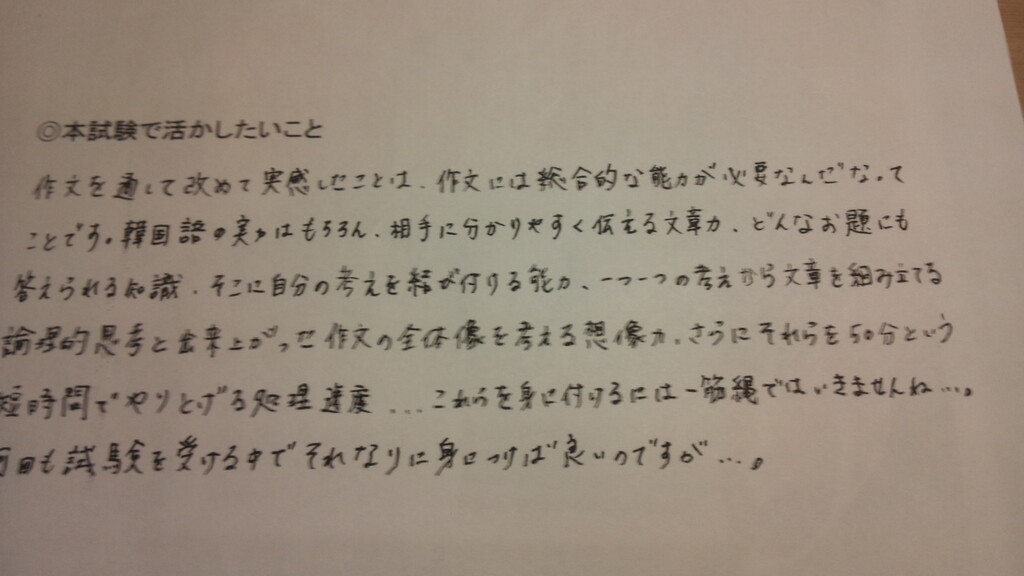 ◎本試験で活かしたいこと
作文を通して改めて実感したことは、作文には総合的な能力が必要なんだなって
ことです。韓国語の実力はもちろん、相手に分かりやすく伝える文章力、どんなお題にも
答えられる知識、そこに自分の考えを結び付ける能力、一つ一つの考えから文章を組み立てる
論理的思考と出来上がった作文の全体像を考える想像力、さらにそれらを50分という
短時間でやりとげる処理速度...これらを身に付けるには一筋縄ではいきませんね...。
回も試験を受ける中でそれなりに身につけば良いのですが...。